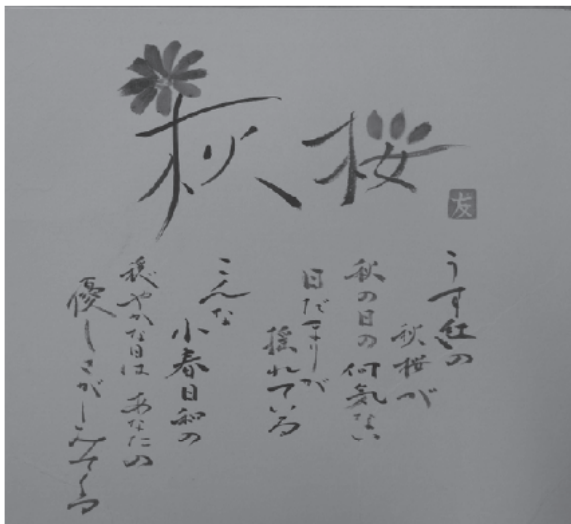 秋桜
友
うす紅の
秋桜が
秋の日の 何気ない
日だまりが
揺れている
こんな
小春日和の
穏やかな日は あなたの
優しさがしみてくる